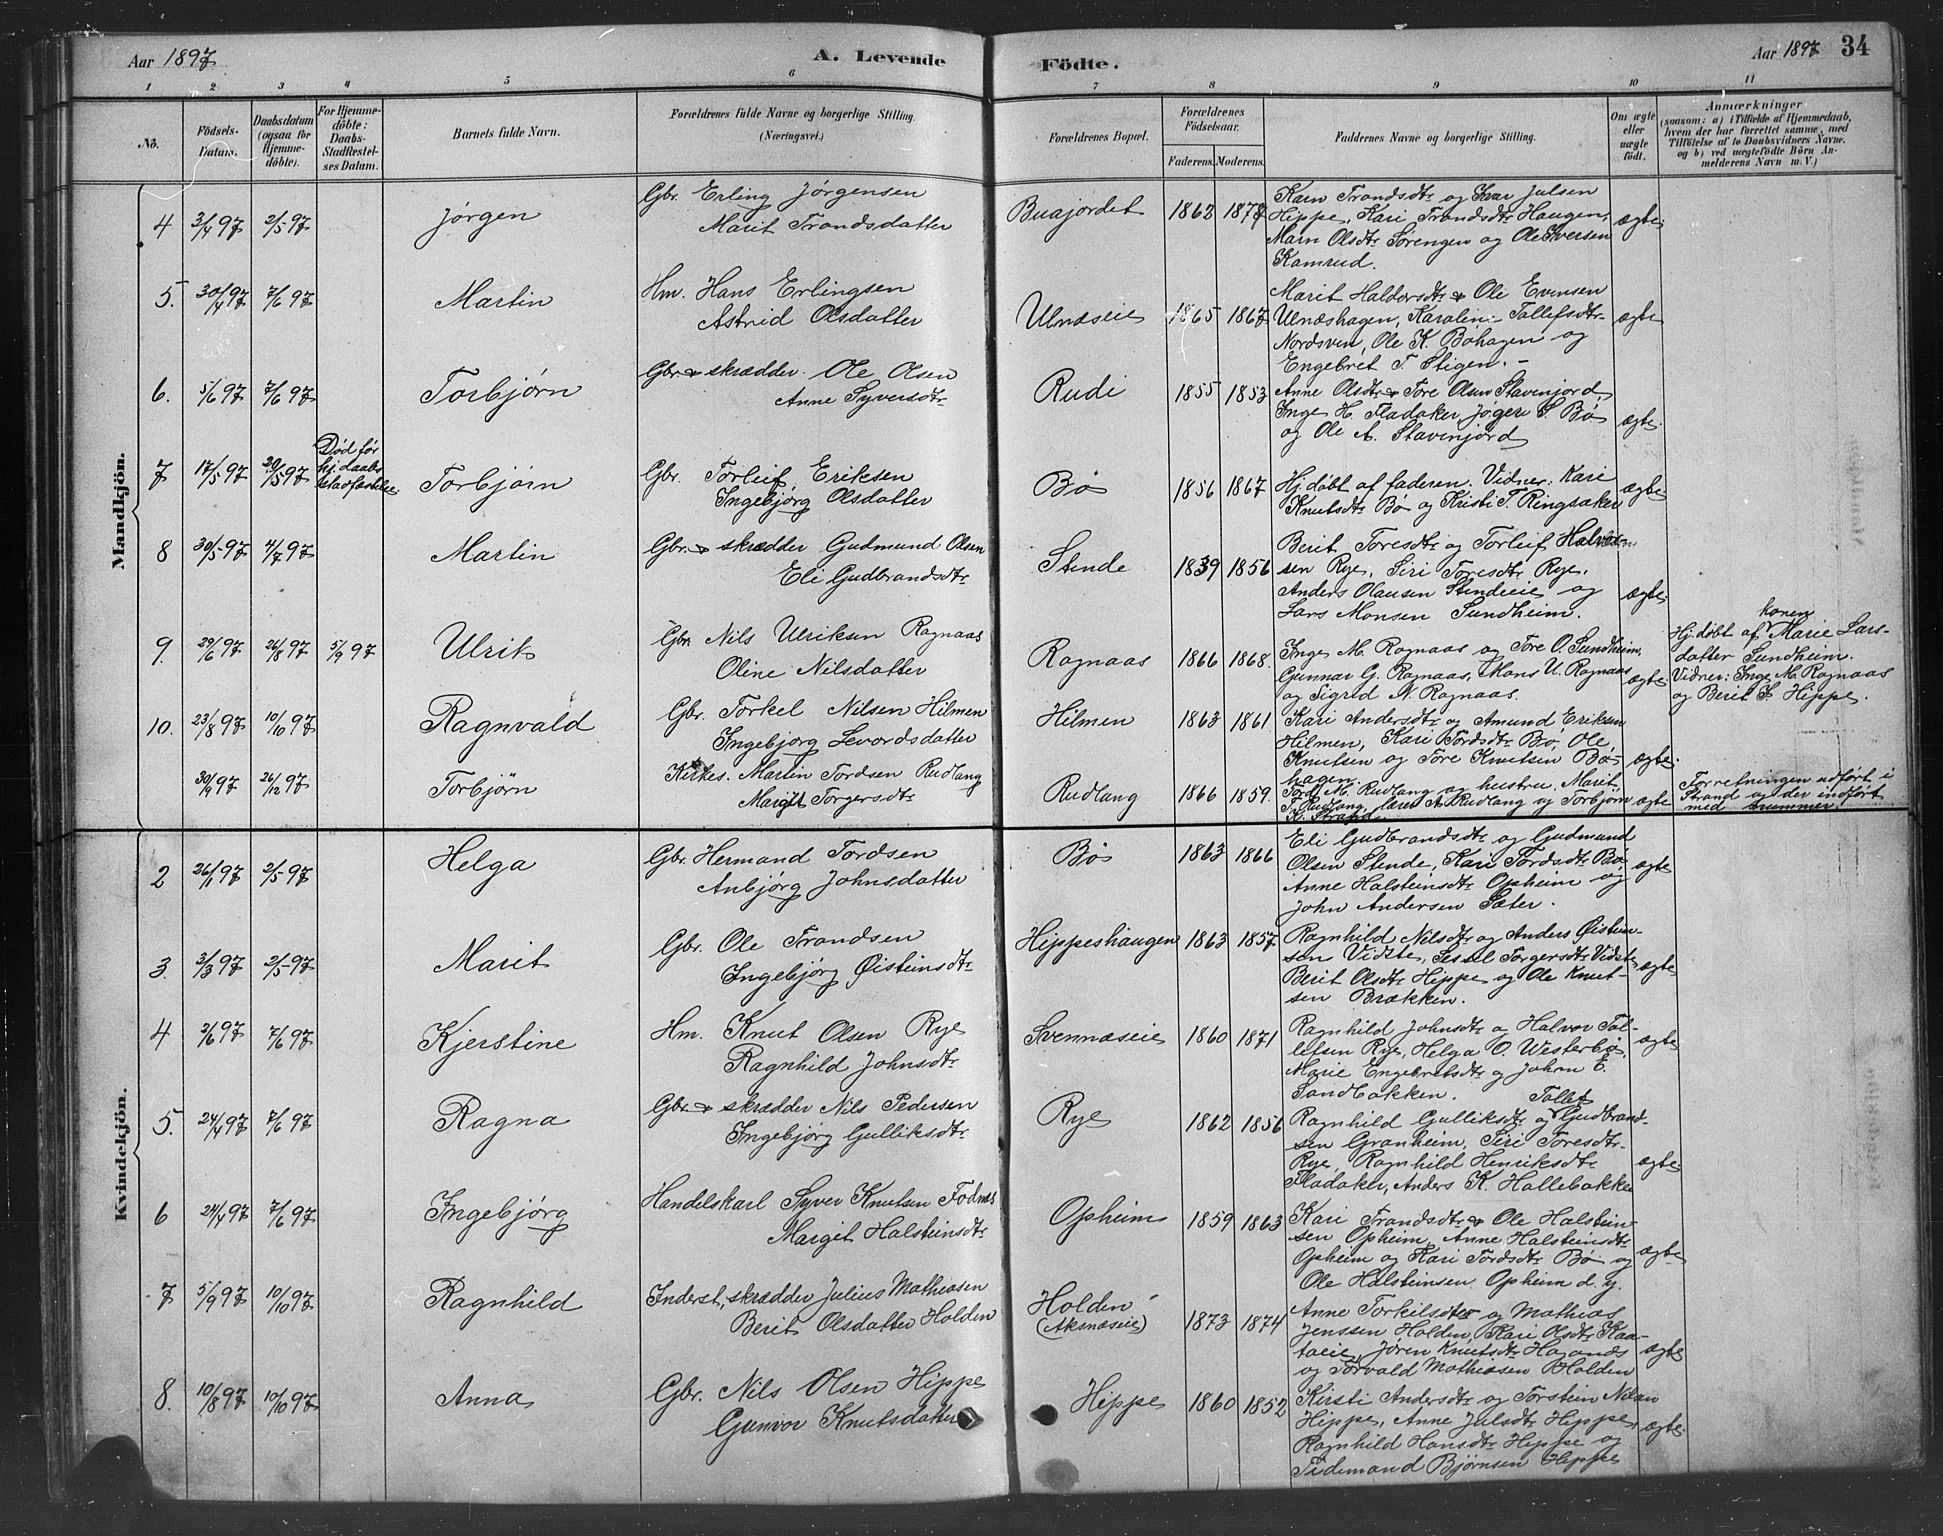 Aar 1897
A. Levende
Födte.
Aar 1897 34
1 2 3 4 5 6 7 8 9 10 11
No.
Födsels-
Datum.
Daabsdatum
(ogsaa for
Hjemme-
döbte).
For Hjemme-
döbte:
Daabs-
Stadfæstel-
ses Datum.
Barnets fulde Navn.
Forældrenes fulde Navne og borgerlige Stilling.
(Næringsvei.)
Forældrenes Bopæl.
Forældrenes
Födselsaar.
Faderens. Moderens.
Faddernes Navne og borgerlige Stilling.
Om ægte
eller
uægte
födt.
Anmærkninger
(saasom: a) i Tilfælde af Hjemmedaab,
hvem der har forrettet samme, med
Tilföielse af to Daabsvidners Navne.
og b) ved uægtefödte Börn An-
melderens Navn m. V.)
Mandkjön.
4 3/4 97 2/5 97 Jørgen
Gbr. Erling Jørgensen
Marit Trondsdatter
Buajordet 1862 1877
Karn Trondsdtr og Ivar Julsen
Hippe, Kari Trondsdtr Haugen,
Marn Olsdtr Sørengen og Ole Iversen
Kamrud.
ægte
5. 30/4 97 7/6 97 Martin
Hm. Hans Erlingsen
Astrid Olsdatter
Ulnæseie 1865 1867
Marit Haldorsdtr & Ole Evensen
Ulnæshagen, Karalin Tollefsdtr
Nordsven, Ole K. Bøhagen og
Engebret T. Stigen. -
ægte
6. 5/6 97 7/6 97 Torbjørn
Gbr & skrædder Ole Olsen
Anne Syversdtr
Rudi 1855 1853
Anne Olsdtr & Tore Olsen Stavenjord,
Inge H. Fladaker, Jøger S. Bø
og Ole A. Stavenjord
ægte.
7 17/5 97 20/5 97
Død før
hj.daabs
stadfæstelse
Torbjørn
Gbr. Torleif Eriksen
Ingebjørg Olsdatter
Bø 1856 1867
Hj.døbt af faderen. Vidner: Kari
Knutsdtr Bø og Kristi T. Ringsaker
ægte
8 30/5 97 4/7 97 Martin
Gbr. & skrædder Gudmund Olsen
Eli Gudbrandsdtr
Stende 1839 1856
Berit Toresdtr og Torleif Halvor-
sen Rye, Siri Toresdtr Rye,
Anders Olausen Stendeie og
Lars Monsen Sundheim.
ægte
9. 29/6 97 26/8 97 5/9 97 Ulrik
Gbr Nils Ulriksen Rognaas
Oline Nilsdatter
Rognaas 1866 1868.
Inge M. Rognaas og Tore O. Sundheim,
Gunnar G. Rognaas, Mons U. Rognaas
og Sigrid N. Rognaas.
ægte
konen
Hj.døbt af Marie Lars-
datter Sundheim.
Vidner: Inge M. Rognaas
og Berit S. Hippe.
10. 23/8 97 10/10 97 Ragnvald
Gbr. Torkel Nilsen Hilmen
Ingebjørg Levordsdatter
Hilmen 1863 1861
Kari Andersdtr og Amund Eriksen
Hilmen, Kari Tordsdtr Bø, Ole
Knutsen og Tore Knutsen Bø-
hagen.
ægte
30/9 97 26/12 97 Torbjörn
Kirkes. Martin Tordsen Rudlang
Margit Torgersdtr
Rudlang 1866 1859.
Tord M. Rudlang og hustru, Marit
T. Rudlang, lærer A. Rudlang og Torbjørn
K. Strand.
ægte
Forretningen udført i
Strand og der indført
med nummer.
Kvindekjön.
2 26/1 97 2/5 97 Helga
Gbr. Hermand Tordsen
Anbjørg Johnsdatter
Bø 1863 1866
Eli Gudbrandsdtr og Gudmund
Olsen Stende, Kari Tordsdtr Bø,
Anne Halsteinsdtr Opheim og
John Andersen Sæter.
ægte
3. 3/3 97 2/5 97 Marit
Gbr. Ole Trondsen
Ingebjørg Øisteinsdtr
Hippeshaugen 1863 1857
Ragnhild Nilsdtr og Anders Øistein-
sen Vidste, Sessel Torgersdtr Vidste
Berit Olsdtr Hippe og Ole Knut-
sen Brækken.
ægte
4 2/6 97 7/6 97 Kjerstine
Hm. Knut Olsen Rye
Ragnhild Johnsdtr
Svennæseie 1860 1871
Ragnhild Johnsdtr og Halvor Tol-
lefsen Rye, Helga O. Westerbø,
Marie Engebretsdtr og Johan E.
Sandbakken.
ægte
5. 24/4 97 7/6 97 Ragna
Gbr & skrædder Nils Pedersen
Ingebjörg Gulliksdtr
Rye 1862 1856
Tollef
Ragnhild Gulliksdtr og Gudbrand-
sen Granheim, Siri Toresdtr
Rye, Ragnhild Henriksdtr
Fladaker, Anders K. Hallebakke
ægte
6 24/4 97 7/6 97 Ingebjörg
Handelskarl Syver Knutsen Fodnes
Margit Halsteinsdtr
Opheim 1859 1863
Kari Trondsdtr & Ole Halstein-
sen Opheim, Anne Halsteinsdtr
Opheim og Kari Tordsdtr Bø og
Ole Halsteinsen Opheim d. y.
ægte
7 5/9 97 10/10 97 Ragnhild
Inderst, skrædder Julius Mathiasen
Berit Olsdatter Holden
Holden
(Aksnæseie) 1873 1874
Anne Torkilsdtr og Mathias
Jenssen Holden, Kari Olsdtr Kaa-
taeie, Jøren Knutsdtr
og Torvald Mathiasen Holden
ægte
8. 10/8 97 10/10 97 Anna
Gbr. Nils Olsen Hippe
Gunvor Knutsdatter
Hippe 1860 1852
Kirsti Andersdtr og Torstein Nilsen
Hippe, Anne Julsdtr Hippe,
Ragnhild Hansdtr Hippe og
Tidemand Bjørnsen Hippe
ægte